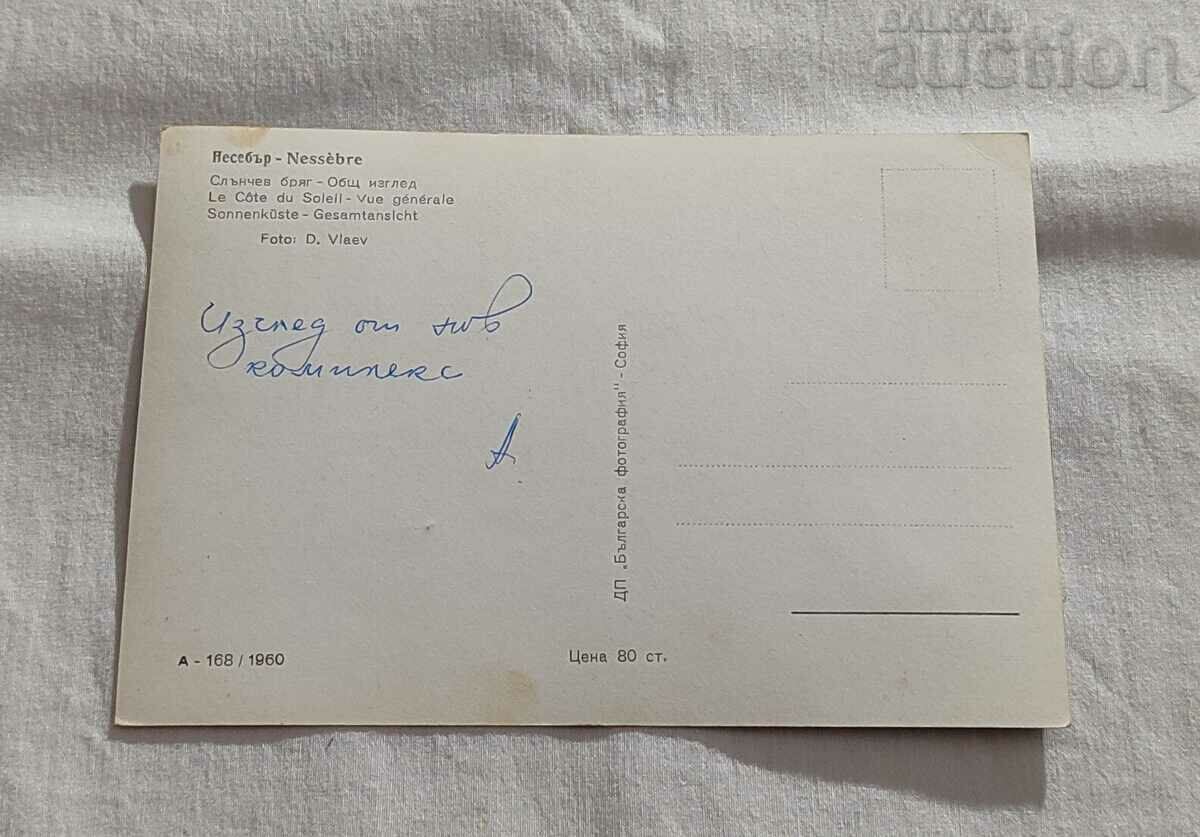 BALKAN
auction
Несебър - Nessèbre
Слънчев бряг - Общ изглед
Le Côte du Soleil - Vue générale
Sonnenküste - Gesamtansicht
Foto: D. Vlaev
Изглед от нов
комплекс
А.
ДП „Българска фотография" - София
А - 168 / 1960
Цена 80 ст.